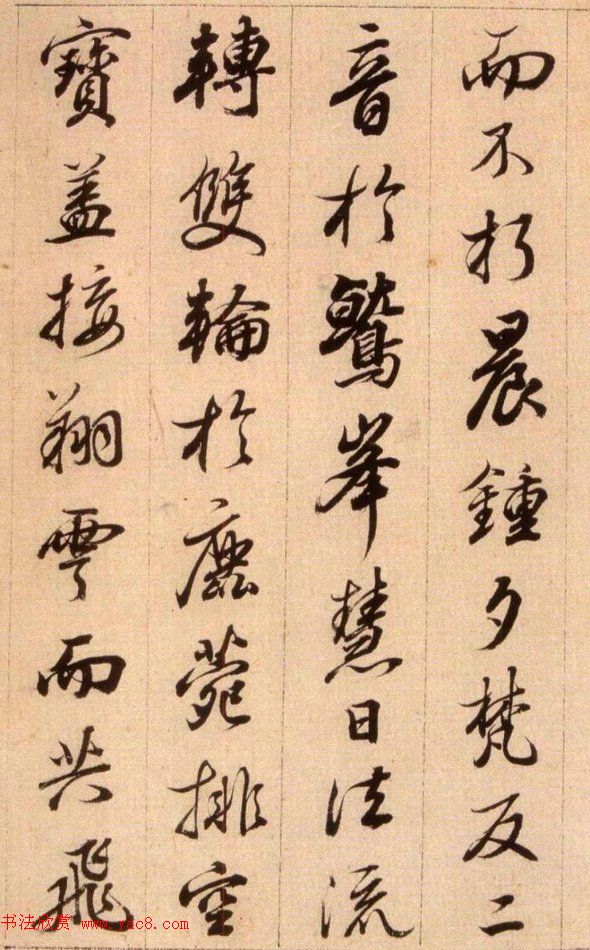 而不朽晨鍾夕梵反二
音於鷲峯慧日法流
轉雙輪於鹿菀排空
寶盖接翔雲而共飛
书法欣赏 www.yac8.com